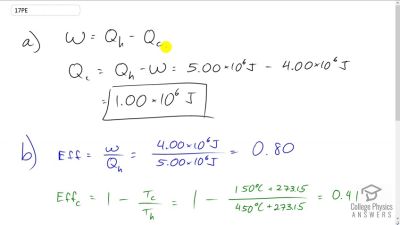 17PE
a) W = Q_h - Q_c
Q_c = Q_h - W = 5.00×10⁶ J - 4.00×10⁶ J
= 1.00×10⁶ J
b) Eff = W/Q_h = 4.00×10⁶ J / 5.00×10⁶ J = 0.80
Eff_c = 1 - T_c/T_h = 1 - 150°C + 273.15 / 450°C + 273.15 = 0.41
College Physics
ANSWERS